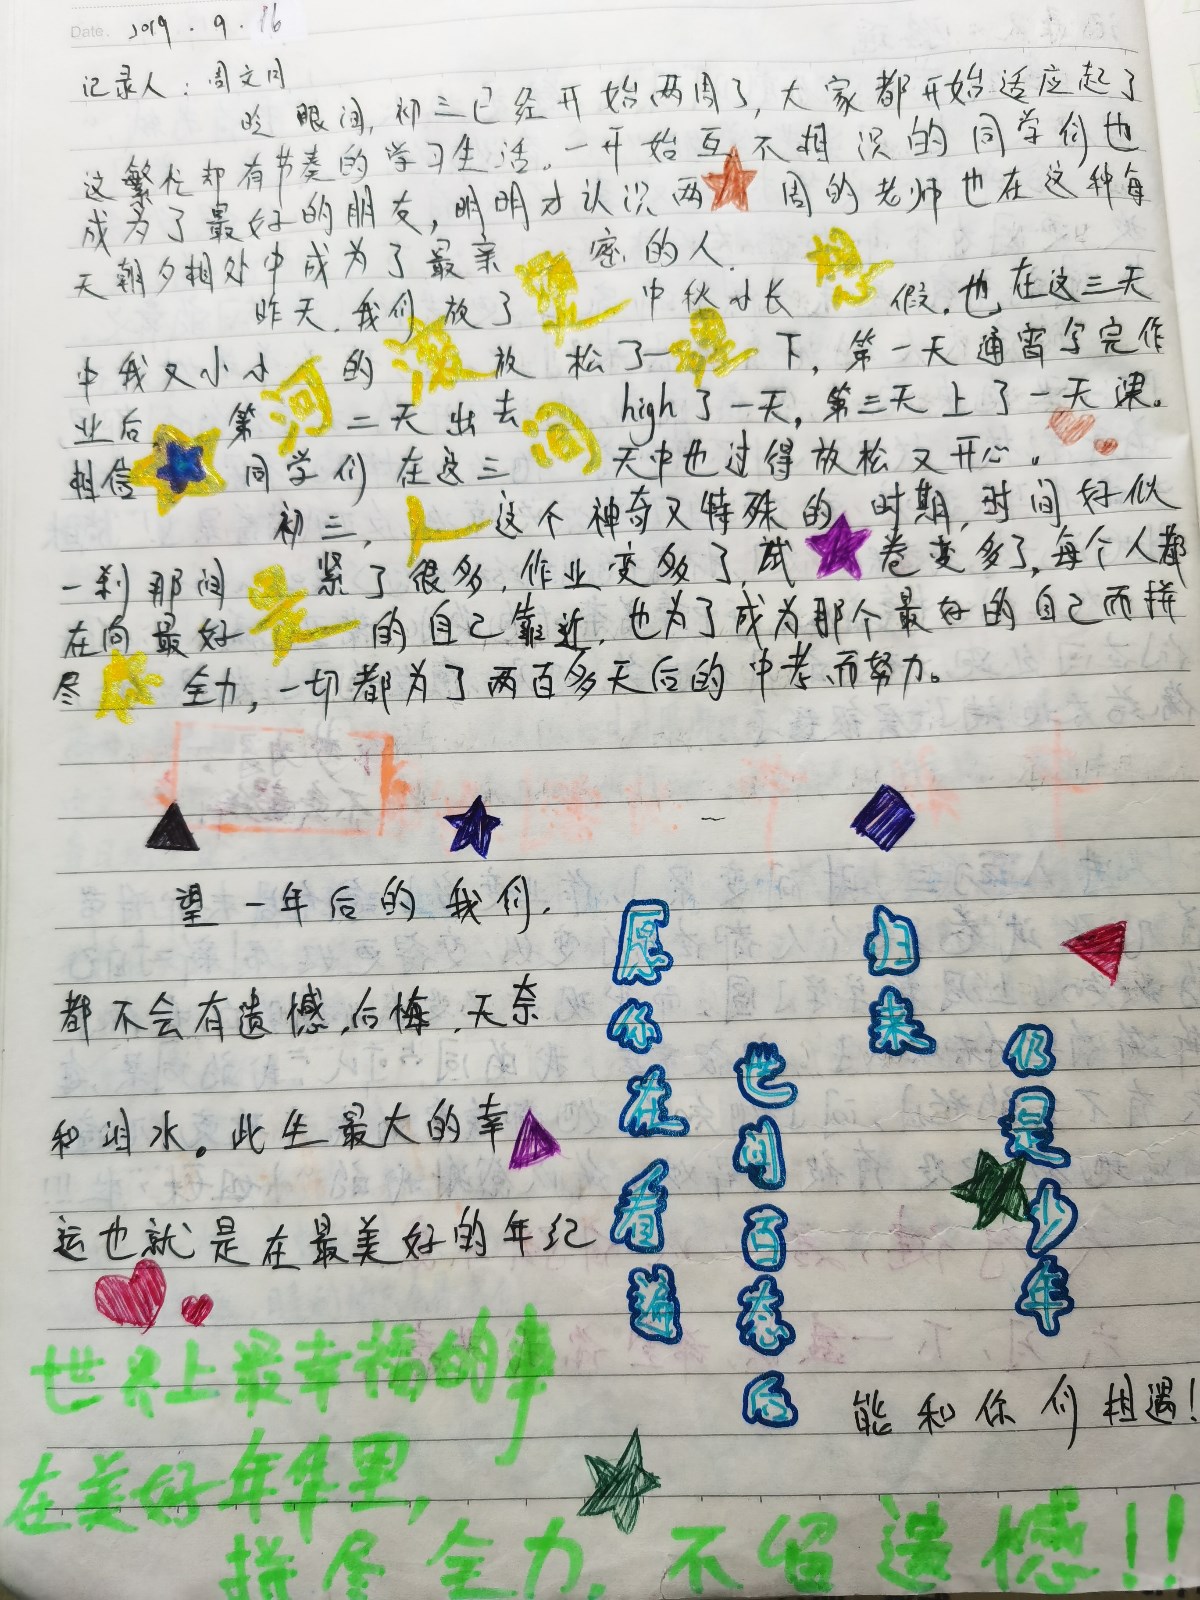 Date. 2019.9.16
记录人：周文月
眨眼间，初三已经开始两周了，大家都开始适应起了
这繁忙却有节奏的学习生活。一开始互不相识的同学们也
成为了最好的朋友，明明才认识两周的老师也在这种每
天朝夕相处中成为了最亲密的人.
昨天.我们放了中秋小长假.也在这三天
中我又小小的放松了一下，第一天通宵写完作
业后第二天出去high了一天，第三天上了一天课。
相信同学们在这三天中也过得放松又开心。
初三，这个神奇又特殊的时期，时间好似
一刹那间紧了很多.作业变多了.试卷变多了.每个人都
在向最好的自己靠近.也为了成为那个最好的自己而拼
尽全力，一切都为了两百多天后的中考而努力。
望一年后的我们.
都不会有遗憾.后悔.无奈
和泪水。此生最大的幸
运也就是在最美好的年纪
能和你们相遇！
星河滚
烫
你
人间
是
理想
愿你在看遍
世间百态后
归来
仍是少年
世界上最幸福的事
在美好年华里，
拼尽全力.不留遗憾!!